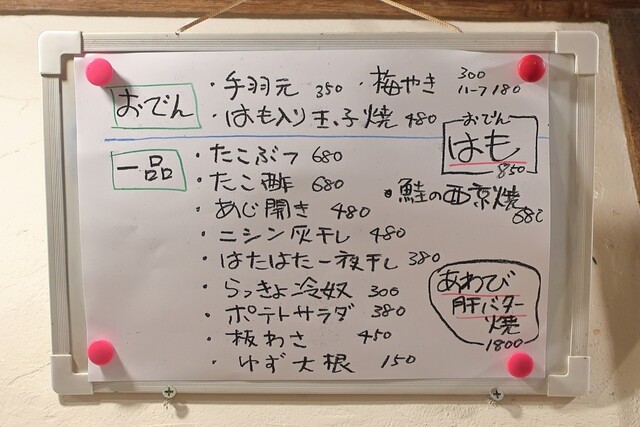 おでん
・手羽元 350 ・梅やき 300
ハーフ180
・はも入り玉子焼 480
おでん
はも
850
一品
・たこぶつ 680
・たこ酢 680
・鮭の西京焼
680
・あじ開き 480
・ニシン灰干し 480
・はたはた一夜干し 380
・らっきょ冷奴 300
・ポテトサラダ 380
・板わさ 450
・ゆず大根 150
あわび
肝バター
焼
1800